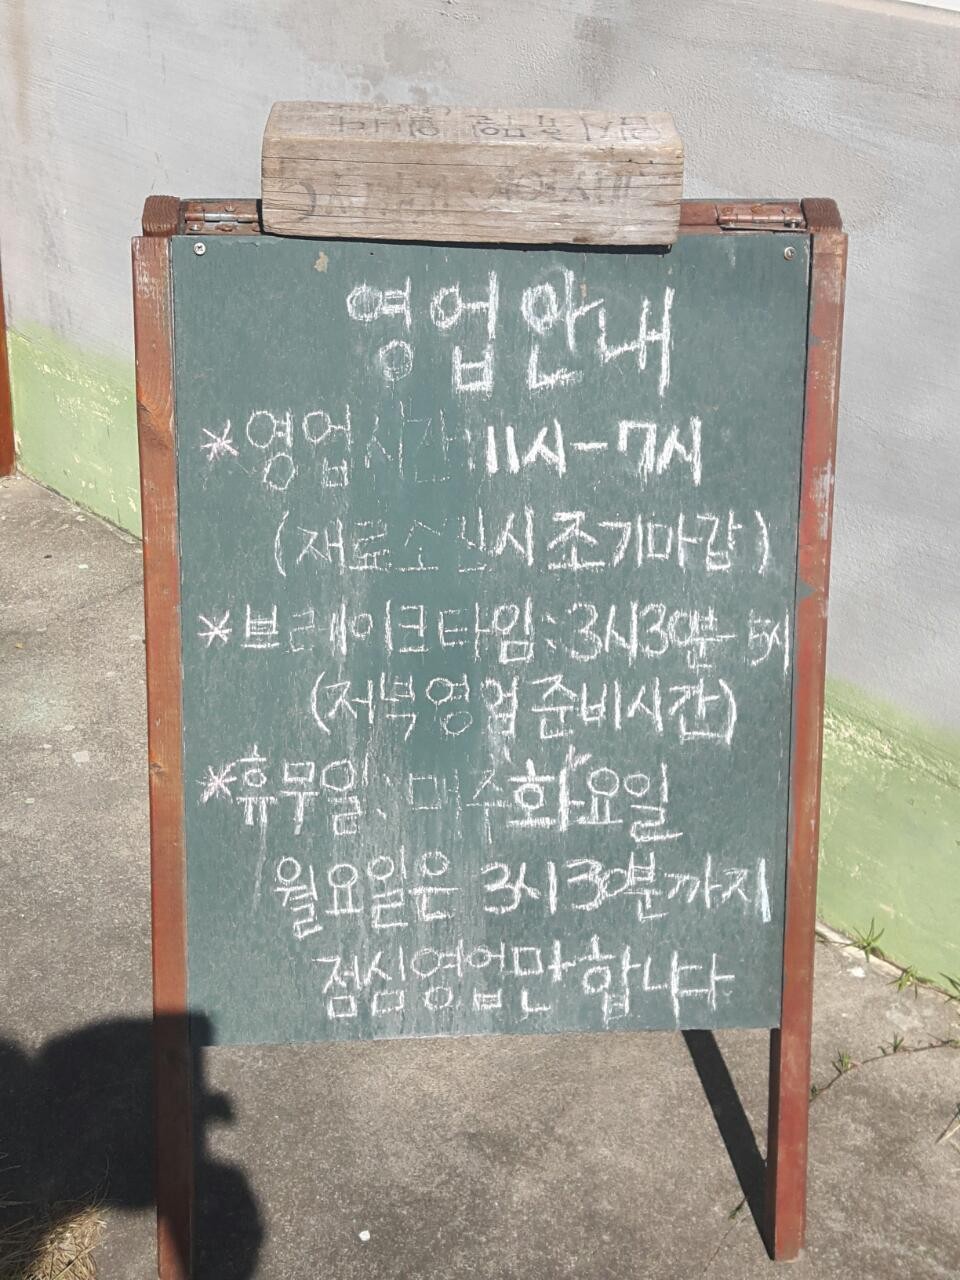 영업안내
*영업시간:11시-7시
(재료소진시 조기마감)
*브레이크타임:3시30분 5시
(저녁영업준비시간)
*휴무일: 매주화요일
월요일은 3시30분까지
점심영업만 합니다